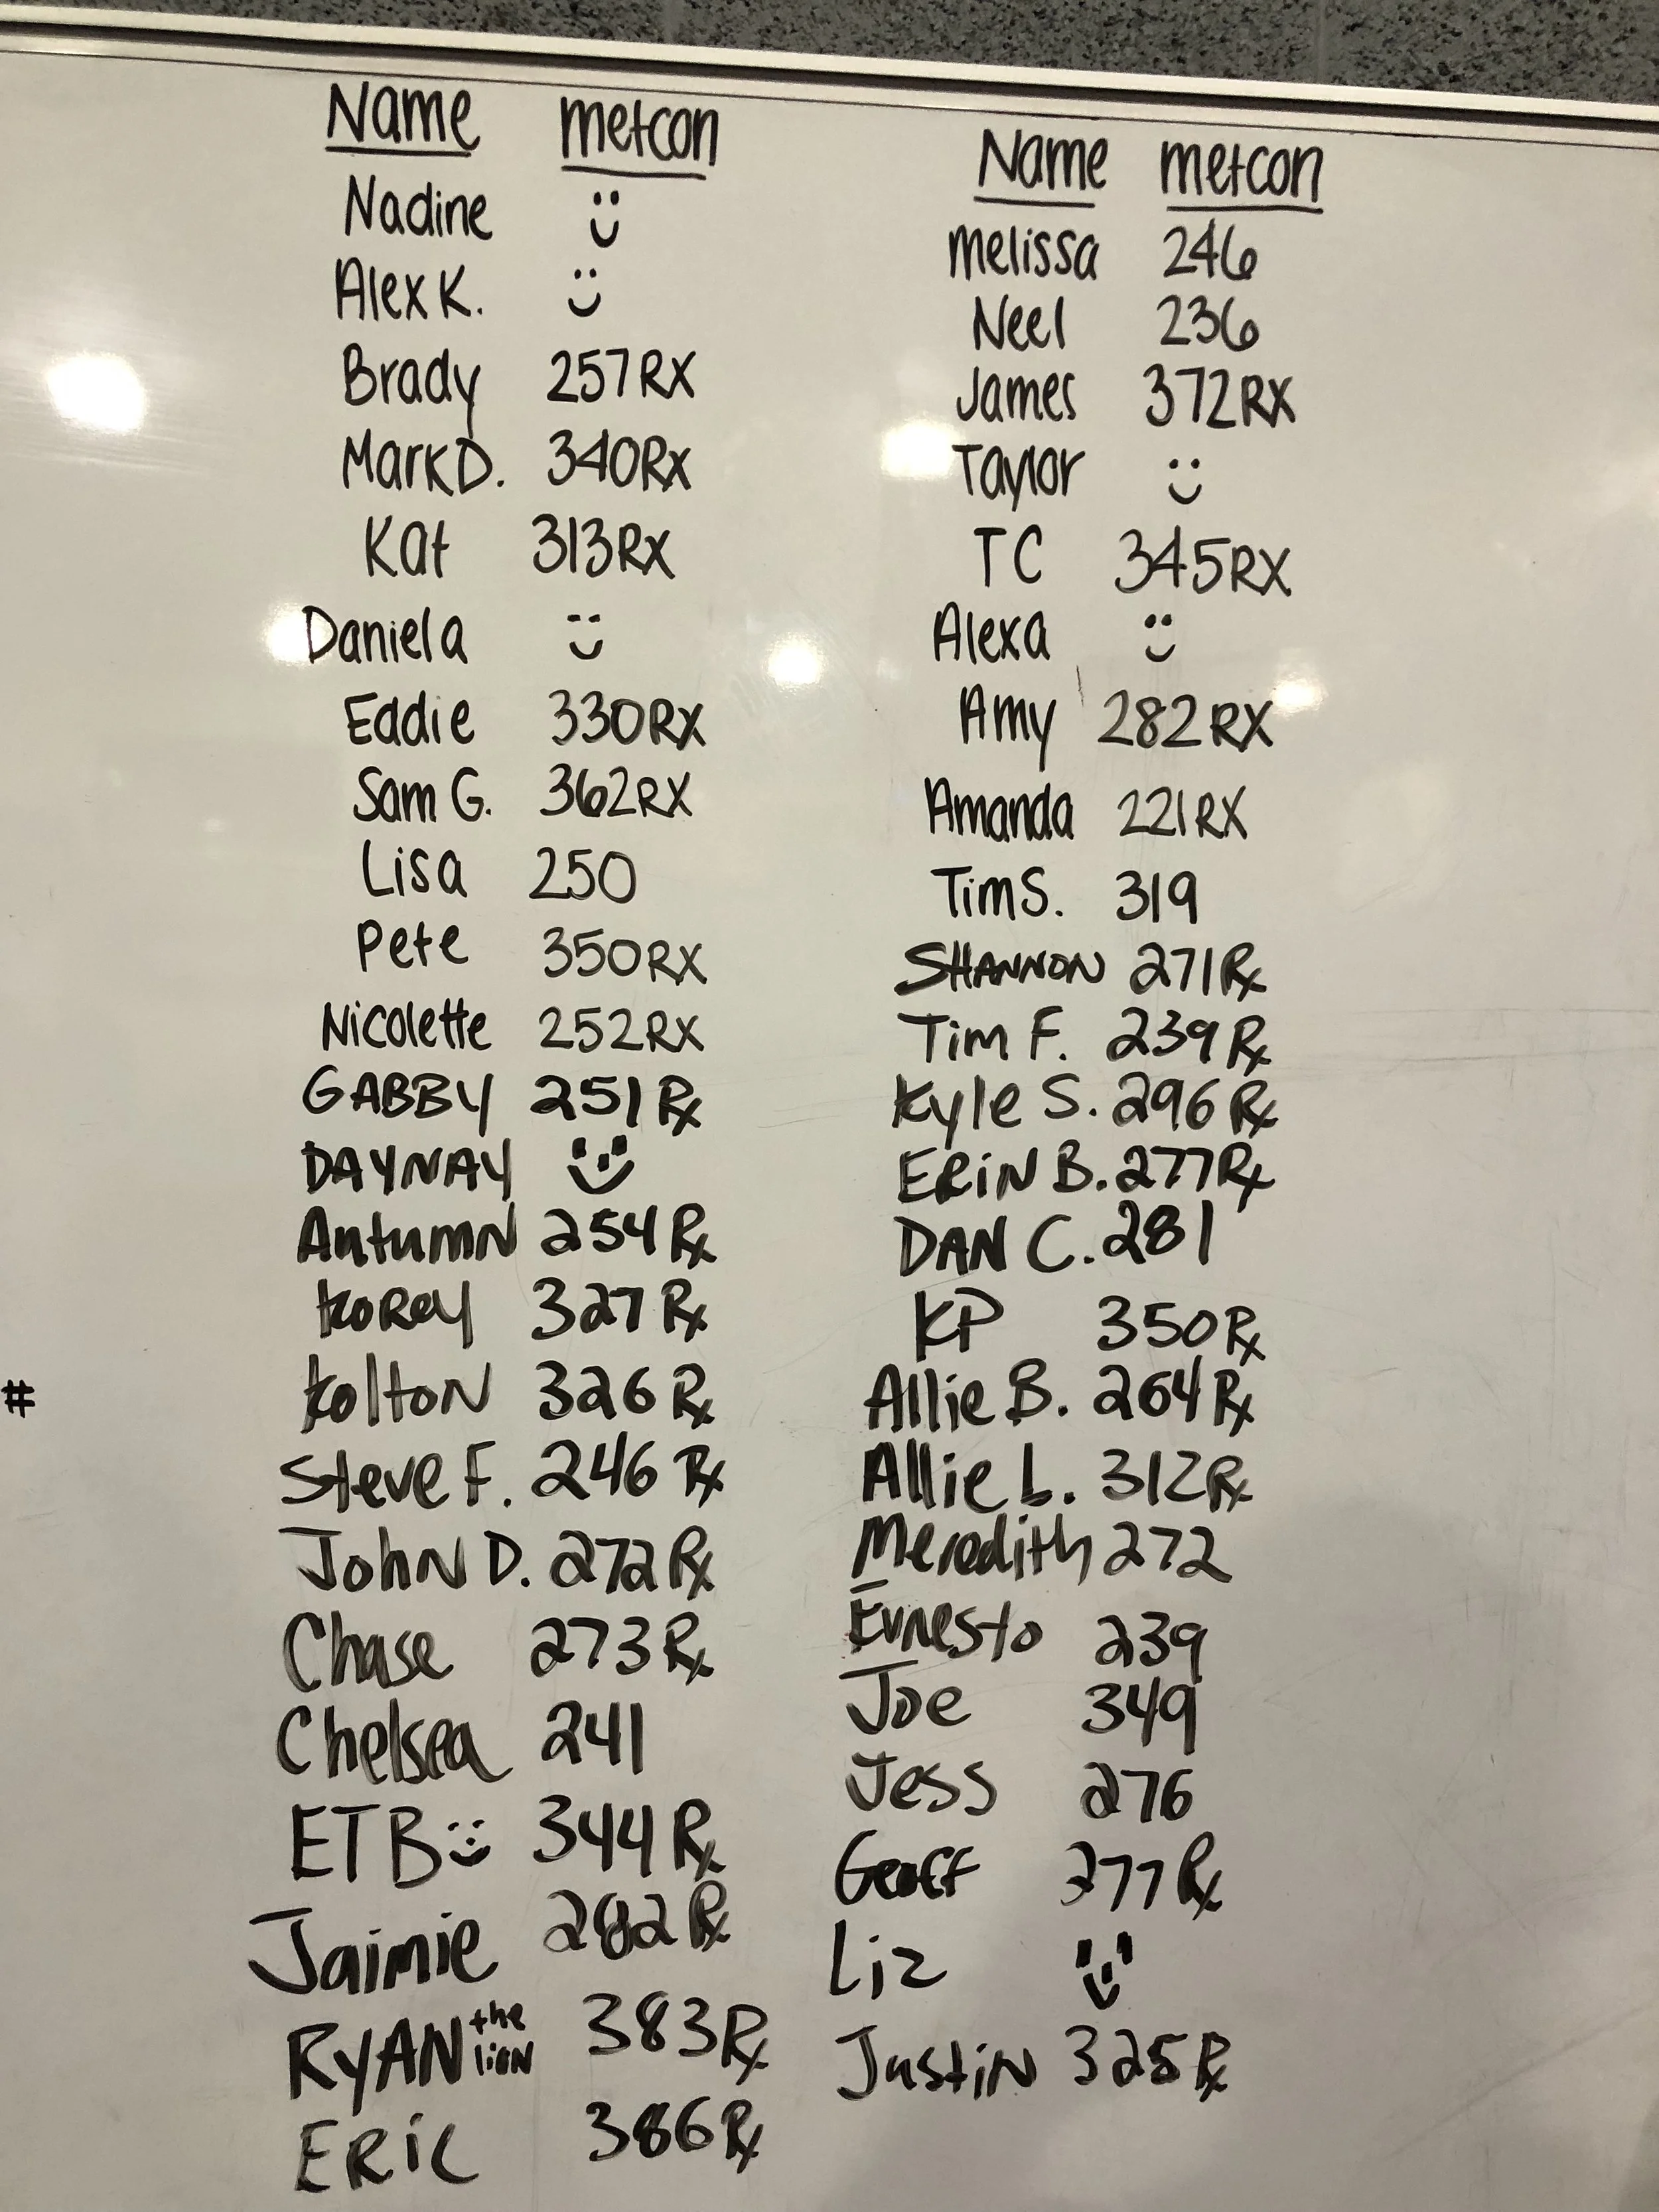 Name metcon
Nadine
Alex K.
Brady 257RX
Mark D. 340Rx
Kat 313Rx
Daniela
Eddie 330RX
Sam G. 362RX
Lisa 250
Pete 350RX
Nicolette 252RX
GABBY 251 Rx
DAYNAY
Autumn 254 Rx
Korey 327 Rx
# Kolton 326 Rx
Steve F. 246 Rx
John D. 272 Rx
Chase 273 Rx
Chelsea 241
ETB 344 Rx
Jaimie 282 Rx
RYAN the lion 383 Rx
ERIC 386 Rx
Name metcon
Melissa 246
Neel 236
James 372RX
Taylor
TC 345RX
Alexa
Amy 282RX
Amanda 221RX
Tim S. 319
SHANNON 271 Rx
Tim F. 239 Rx
Kyle S. 296 Rx
ERIN B. 277 Rx
DAN C. 281
KP 350 Rx
Allie B. 264 Rx
Allie L. 312 Rx
Meredith 272
Ernesto 239
Joe 349
Jess 276
Geoff 277 Rx
Liz
Justin 325 Rx